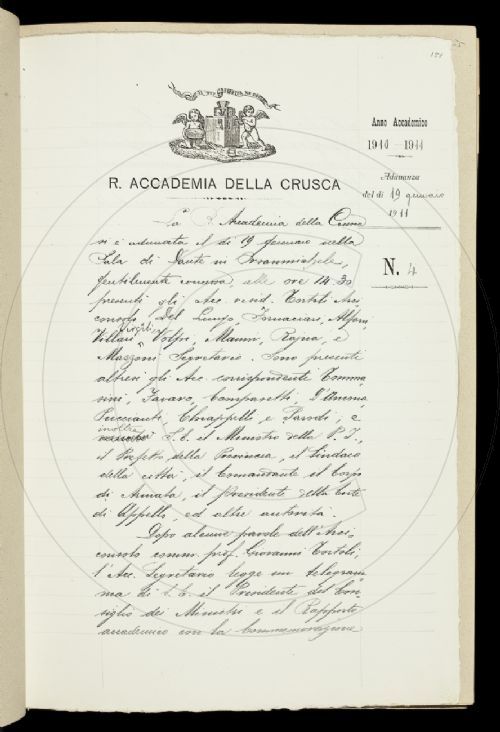 25
121
IL PIÙ BEL FIOR NE COGLIE
R. ACCADEMIA DELLA CRUSCA
Anno Accademico
1910 - 1911
Adunanza
del dì 19 gennaio
1911
N. 4
La R. Accademia della Crusca
si è adunata il dì 19 gennaio nella
Sala di Dante in Orsanmichele,
gentilmente concessa, alle ore 14.30
presenti gli Acc. resid. Tortoli Arci-
consolo, Del Lungo, Fornaciari, Alfani,
Villari, Vigili, Volpi, Mazzi, Rajna, e
Mazzoni Segretario. Sono presenti
altresì gli Acc. corrispondenti Tomma-
sini, Favaro, Comparetti, D'Ancona
Pucciante, Chiappelli e Parodi; e
inoltre
S. E. il Ministro della P. I.,
il Prefetto della Provincia, il Sindaco
della città, il Comandante il Corpo
di Armata, il Presidente della Corte
di Appello, ed altre autorità.
Dopo alcune parole dell'Arci-
consolo comm. prof. Giovanni Tortoli,
l'Acc. Segretario legge un telegram-
ma di S. E. il Presidente del Con-
siglio dei Ministri e il Rapporto
accademico con la Commemorazione